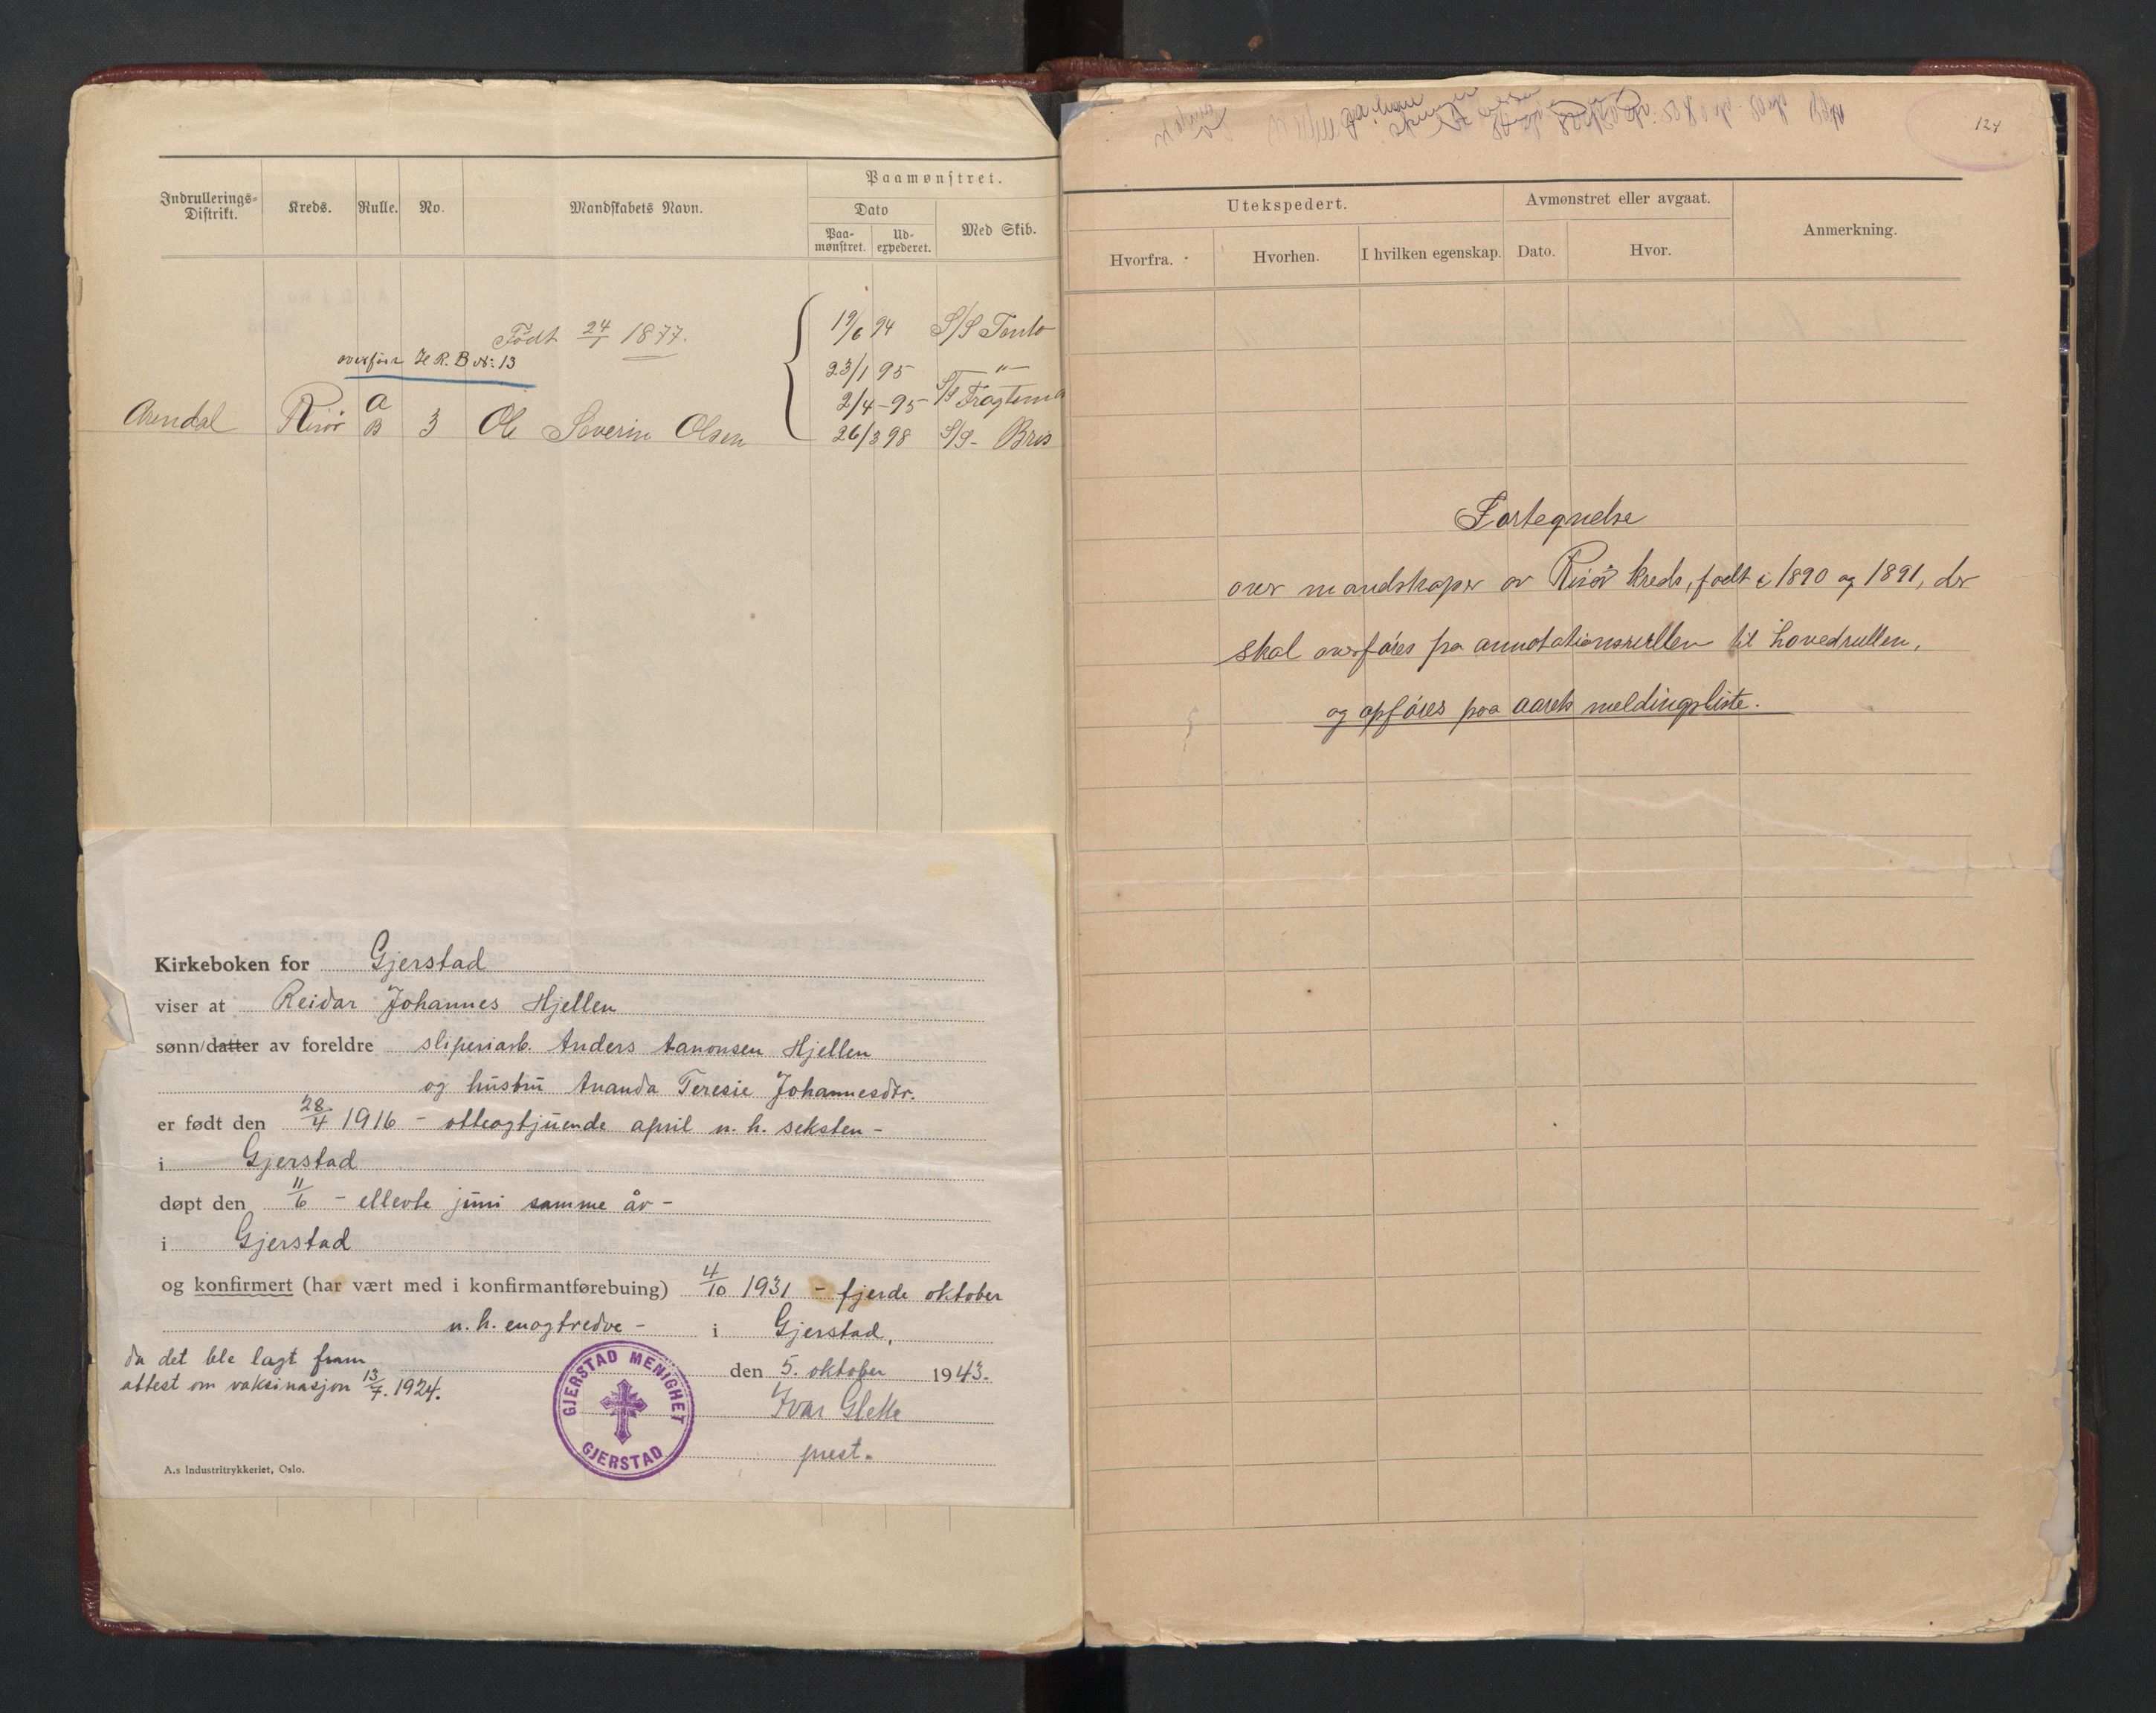 Indrullerings-
Distrikt.
Kreds.
Rulle.
No.
Mandskabets Navn.
Paamønstret.
Dato
Paa-
mønstret.
Ud-
expederet.
Med Skib.
Født 24/1 1877.
overført H.R. B No: 13
Arendal Risør A B 3 Ole Severin Olsen
19/6 94 S/S Tento
23/1 95 — " —
2/4 - 95 S/S
26/3 98 S/S - Bris
Kirkeboken for Gjerstad
viser at Reidar Johannes Hjellen
sønn/datter av foreldre sliperiarb. Anders Aanonsen Hjellen
og hustru Ananda Teresie Johannesdtr.
er født den 28/4 1916 - otteogtjuende april n. h. seksten -
i Gjerstad
døpt den 11/6 - ellevte juni samme år -
i Gjerstad
og konfirmert (har vært med i konfirmantførebuing) 4/10 1931 - fjerde oktober
n. h. enogtredve - i Gjerstad,
da det ble lagt fram
attest om vaksinasjon 13/7. 1924.
den 5. oktober 1943.
Ivar Glette
prest.
GJERSTAD MENIGHET
GJERSTAD
A.s Industritrykkeriet, Oslo.
124
Utekspedert.
Avmønstret eller avgaat.
Anmerkning.
Hvorfra.
Hvorhen.
I hvilken egenskap.
Dato.
Hvor.
Fortegnelse
over mandskaper av Risør kreds, født i 1890 og 1891, der
skal overføres fra annotationsrullen til hovedrullen,
og opføres paa aarets meldingsliste.